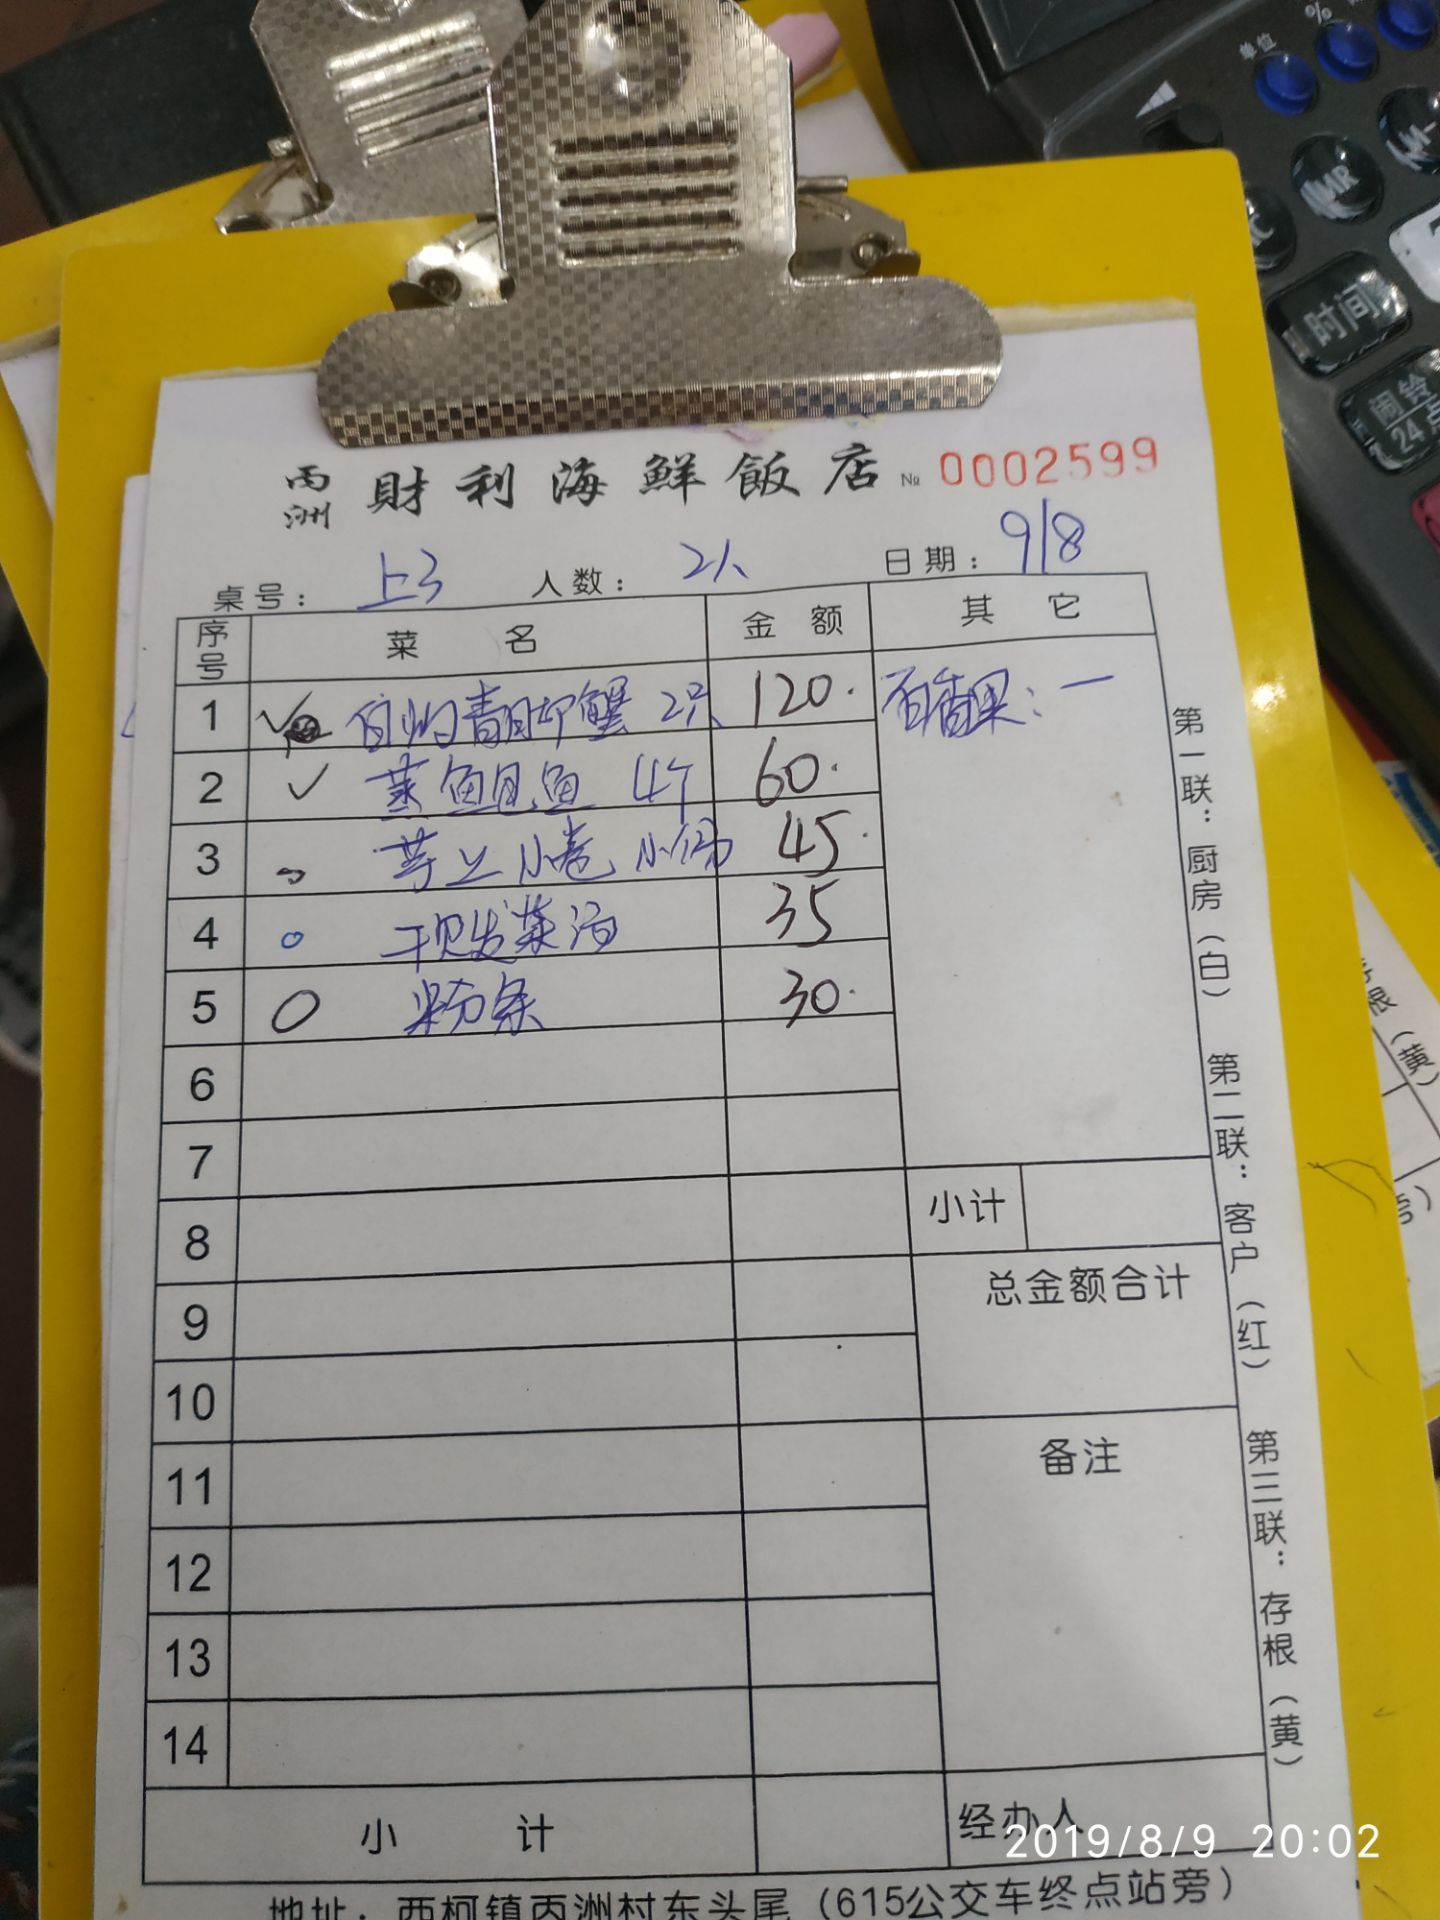 丙洲 財利海鮮飯店 № 0002599
桌号： 上3 人数： 2人 日期： 9/8
序号 菜 名 金 额 其 它
1 白灼青脚蟹 2只 120. 百香果：一
2 蒸鱼 4个 60.
3 芋上小卷 小份 45.
4 干贝发菜汤 35
5 粉条 30.
6
7
8 小计
9 总金额合计
10
11 备注
12
13
14
小 计 经办人
地址：西柯镇丙洲村东头尾（615公交车终点站旁）
第一联：厨房（白） 第二联：客户（红） 第三联：存根（黄）
根（黄）
旁）
% 
单位
MR
时间
闹铃
24点
2019/8/9 20:02